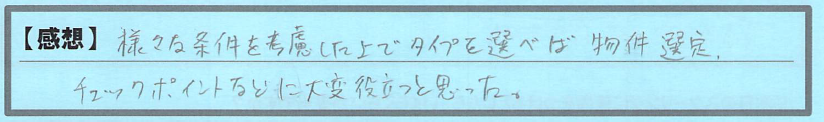 【感想】様々な条件を考慮した上でタイプを選べば 物件選定、
チェックポイントなどに大変役立つと思った。